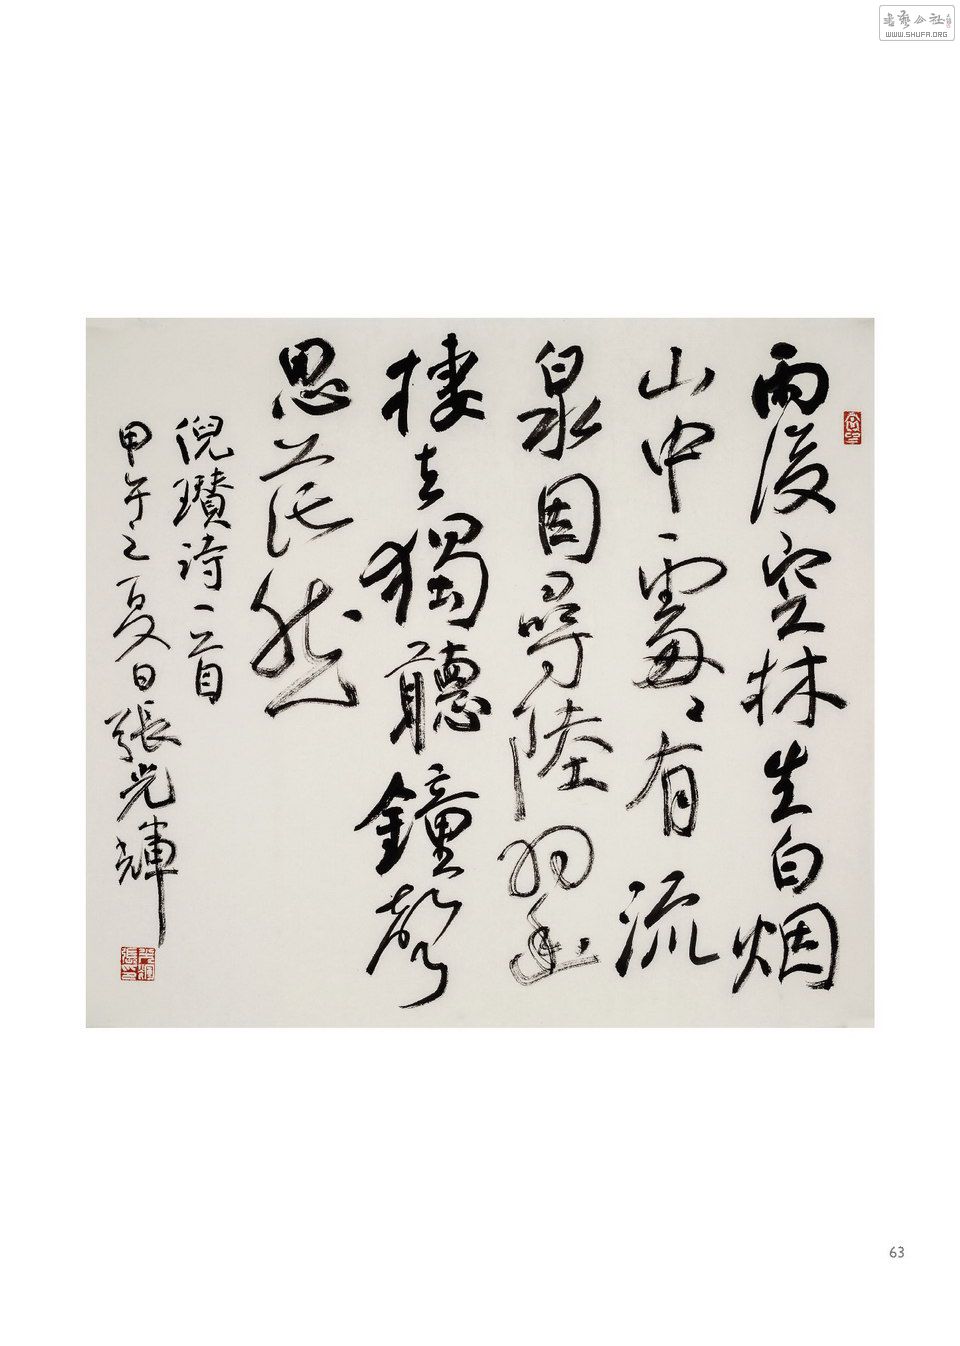 書藝公社
WWW.SHUFA.ORG
雨後空林生白烟
山中處々有流
泉因尋陸羽幽
棲去獨聽鐘聲
思茫然
倪瓚詩一首
甲午之夏日張光輝
63